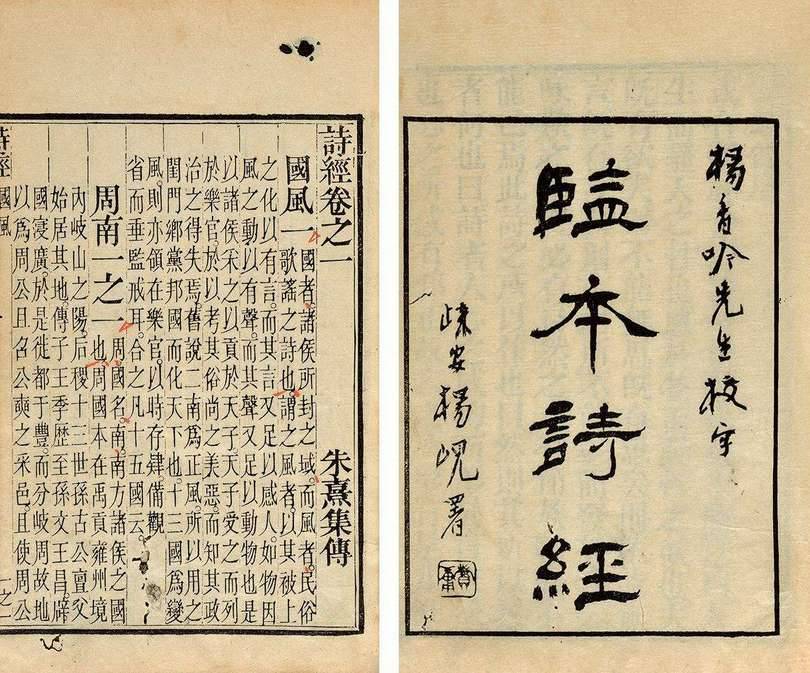 楊香吟先生校字
監本詩經
歸安楊峴署
詩經卷之一 朱熹集傳
國風一 國者。諸侯所封之域。而風者。民俗
歌謠之詩也。謂之風者。以其被上
之化以有言。而其言又足以感人。如物因
風之動以有聲。而其聲又足以動物也。是
以諸侯采之以貢於天子。天子受之而列
於樂官。於以考其俗尚之美惡。而知其政
治之得失焉。舊說二南爲正風。所以用之
閨門鄉黨邦國而化天下也。十三國爲變
風。則亦領在樂官。以時存肄。備觀
省而垂監戒耳。合之凡十五國云。
周南一之一 周國名。南南方諸侯之國
也。周國本在禹貢雍州境
內岐山之陽。后稷十三世孫古公亶父
始居其地。傳子王季歷。至孫文王昌。辟
國寖廣。於是徙都于豐。而分岐周故地
以爲周公旦召公奭之采邑。且使周公
詩經 國風